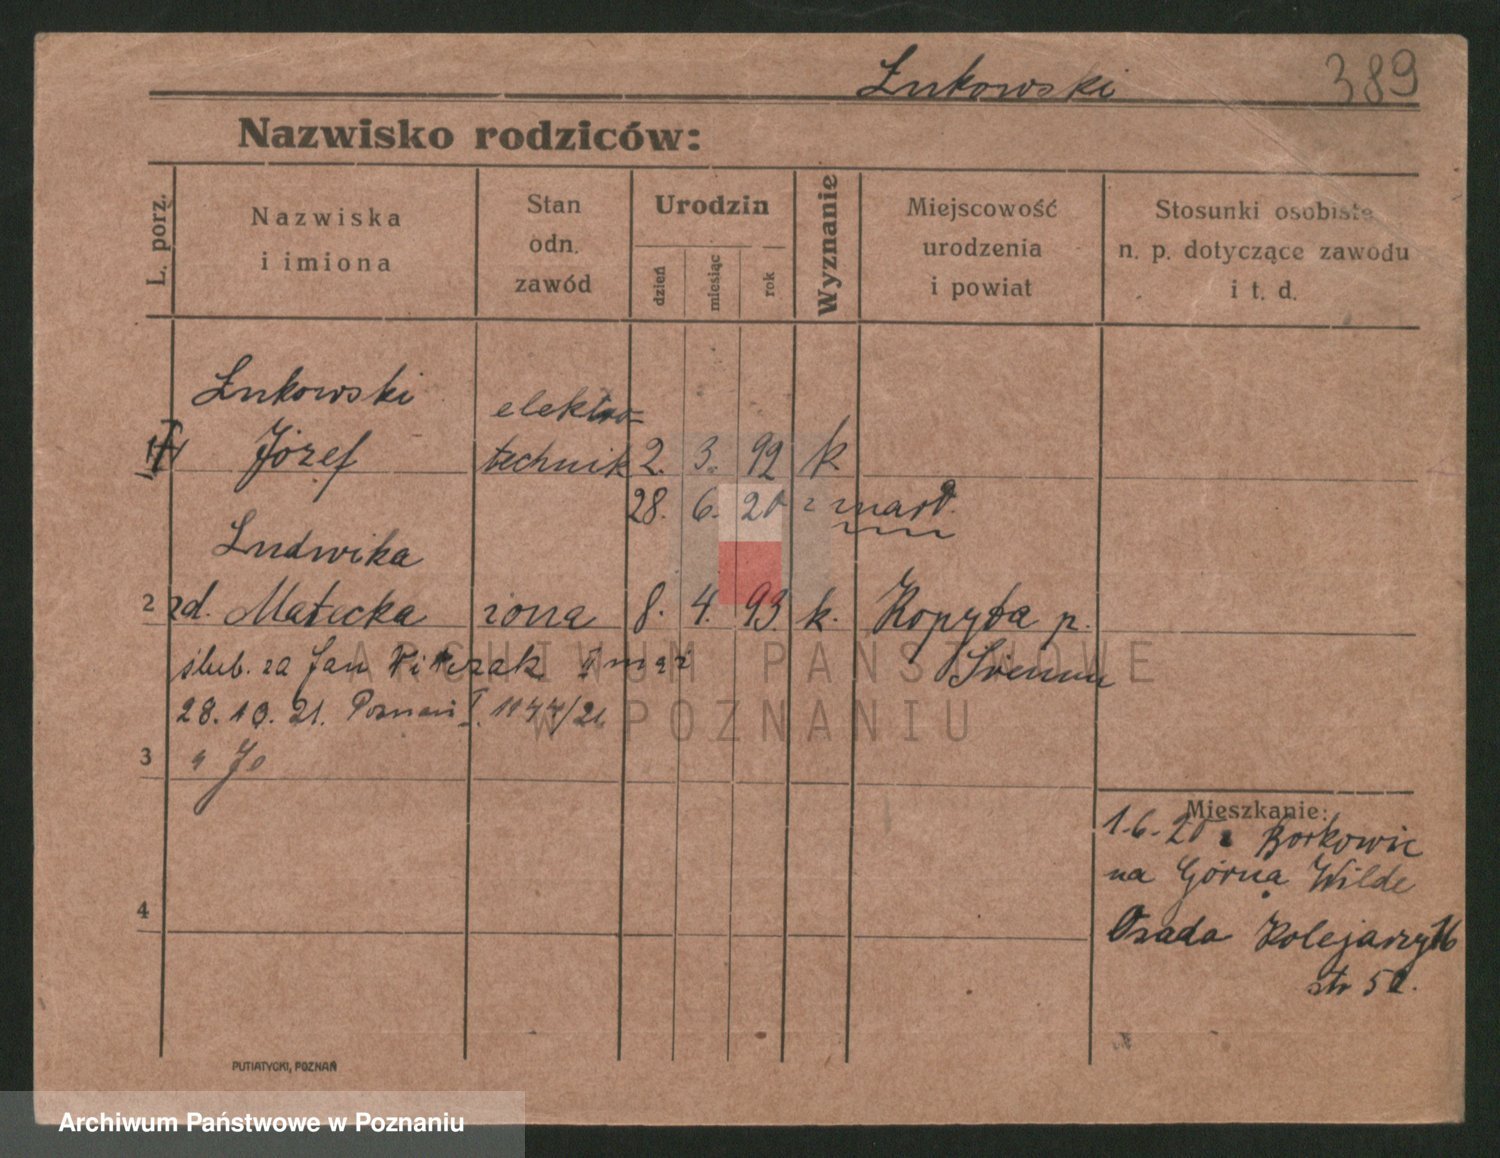 Łukowski 389
Nazwisko rodziców:
L. porz.
Nazwiska
i imiona
Stan
odn.
zawód
Urodzin
dzień
miesiąc
rok
Wyznanie
Miejscowość
urodzenia
i powiat
Stosunki osobiste
n. p. dotyczące zawodu
i t. d.
Łukowski elektro=
1 Józef technik 2. 3. 92 k
28. 6. 20 zmarł.
Ludwika
2 zd. Małecka żona 8. 4. 93 k. Kopyta p.
ślub. za Jan II mąż Śremm
28. 10. 21. Poznań I. 1044/21
3
4
Mieszkanie:
1.6.20 z Borkowic
na Górna Wilde
Osada Kolejarzy 16
str 52.
PUTIATYCKI, POZNAŃ
ARCHIWUM PAŃSTWOWE
W POZNANIU
Archiwum Państwowe w Poznaniu